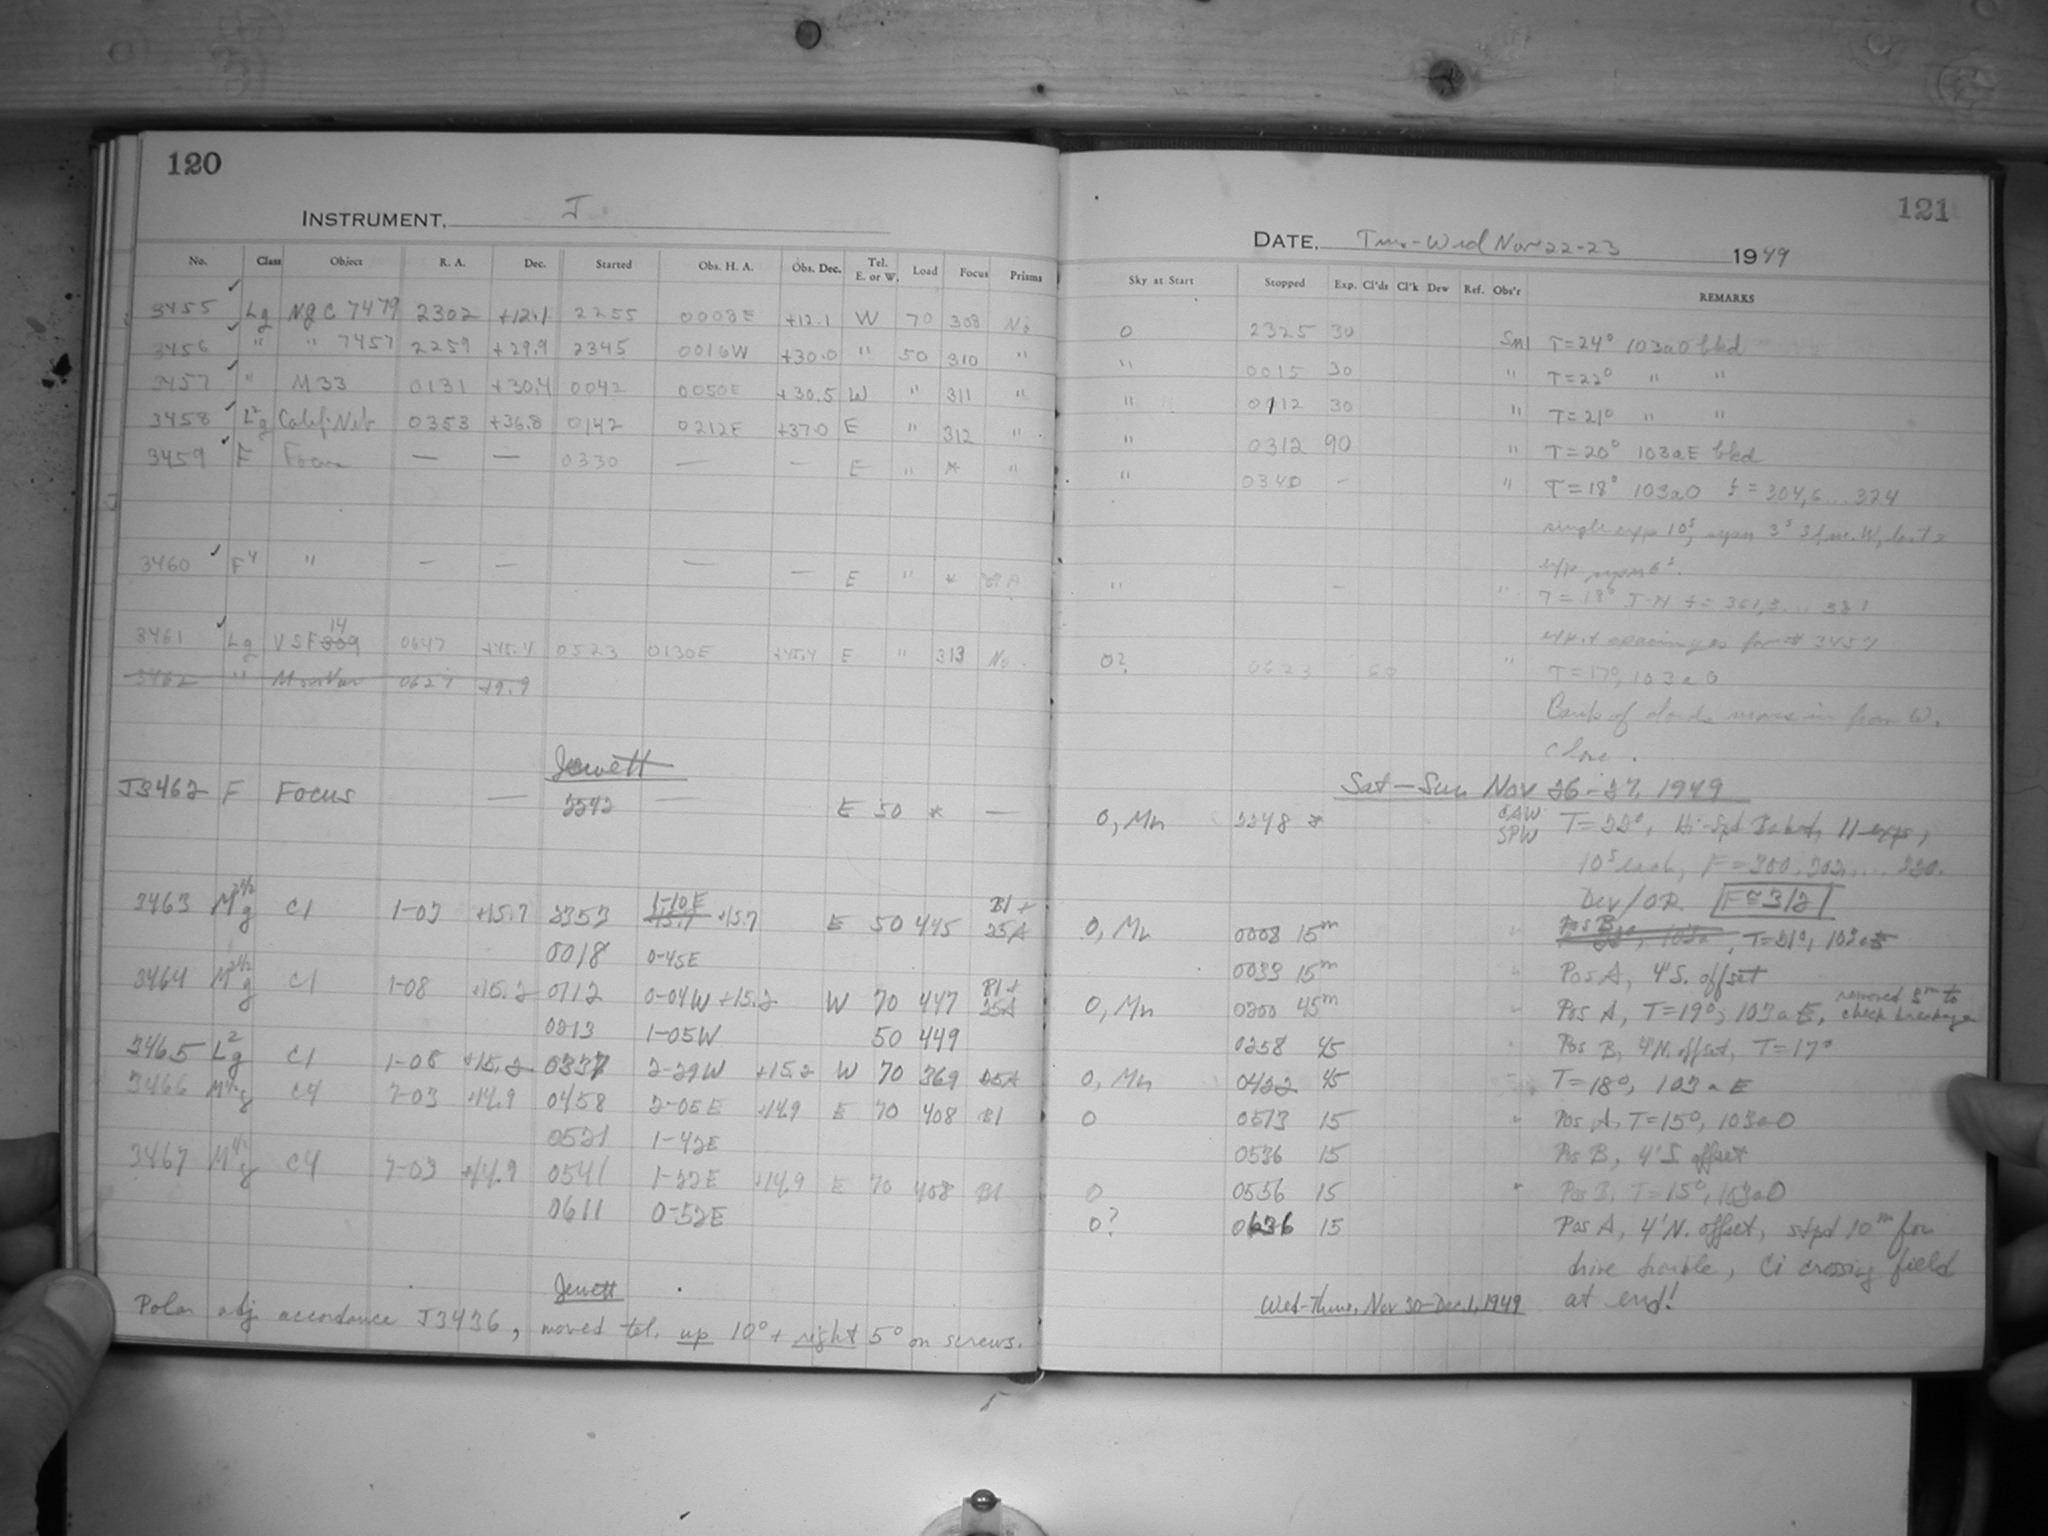 120
INSTRUMENT. J
No. Class Object R. A. Dec. Started Obs. H. A. Obs. Dec. Tel. E. or W. Load Focus Prisms
3455 Lg NgC 7479 2302 +12.1 2255 0003E +12.1 W 70 308 No
3456 " " 7457 2259 +29.9 2345 0016W +30.0 " 50 310 "
3457 " M33 0131 +30.4 0042 0050E +30.5 W " 311 "
3458 L²g Calif. Neb 0353 +36.8 0142 0212E +37.0 E " 312 "
3459 F Focus — — 0330 — — E " * "
3460 F4 " — — — — E " *
3461 Lg VSF 14 0647 +45.4 0523 0130E +45.4 E " 313 No
3462 " Mon Var 0627 +9.9
Jewett
J3462 F Focus — 2242 — E 50 * —
3463 M g C1 1-07 +15.7 2353 1-10E +15.7 E 50 445 B1+ 25A
0018 0-45E
3464 M g C1 1-08 +15.2 0112 0-04W +15.2 W 70 447 B1+ 25A
0213 1-05W 50 449
3465 L²g C1 1-08 +15.2 0337 2-29W +15.2 W 70 369 25A
3466 M g C4 7-03 +14.9 0458 2-05E +14.9 E 70 408 B1
0521 1-42E
3467 M g C4 7-03 +14.9 0541 1-22E +14.9 E 70 408 B1
0611 0-52E
Jewett
Polar adj accordance J3436, moved tel. up 10° + right 5° on screws.
121
DATE. Tues-Wed Nov 22-23 1949
Sky at Start Stopped Exp. Cl'ds Cl'k Dew Ref. Obs'r REMARKS
0 2325 30 Sml T=24° 103aO bkd
" 0015 30 " T=22° " "
" 0112 30 " T=21° " "
" 0312 90 " T=20° 103aE bkd
" 0340 - " T=18° 103aO f=304,6...324
single exp 10s, 3s W, last 2
exp 6s.
" - " T=18° f=361,3...381
0? 0623 60 " T=17°, 103aO
Bank of clouds move in from W.
Close.
Sat-Sun Nov 26-27, 1949
0, Mn 2248 * SPW T=22°, 11 exps,
10s each, F=300, 302, .... 320.
Dev/OR F=312
0, Mn 0008 15m " Pos B, T=21°, 103aE
0033 15m " Pos A, 4'S. offset
0, Mn 0200 45m " Pos A, T=19°, 103aE, removed 3m to check breakage
0258 45 " Pos B, 4'N. offset, T=17°
0, Mn 0422 45 " T=18°, 103aE
0 0513 15 " Pos A, T=15°, 103aO
0536 15 Pos B, 4'S offset
0 0556 15 " Pos B, T=15°, 103aO
0? 0636 15 Pos A, 4'N. offset, stpd 10m for
drive trouble, Ci crossing field
at end!
Wed-Thurs, Nov 30-Dec 1, 1949